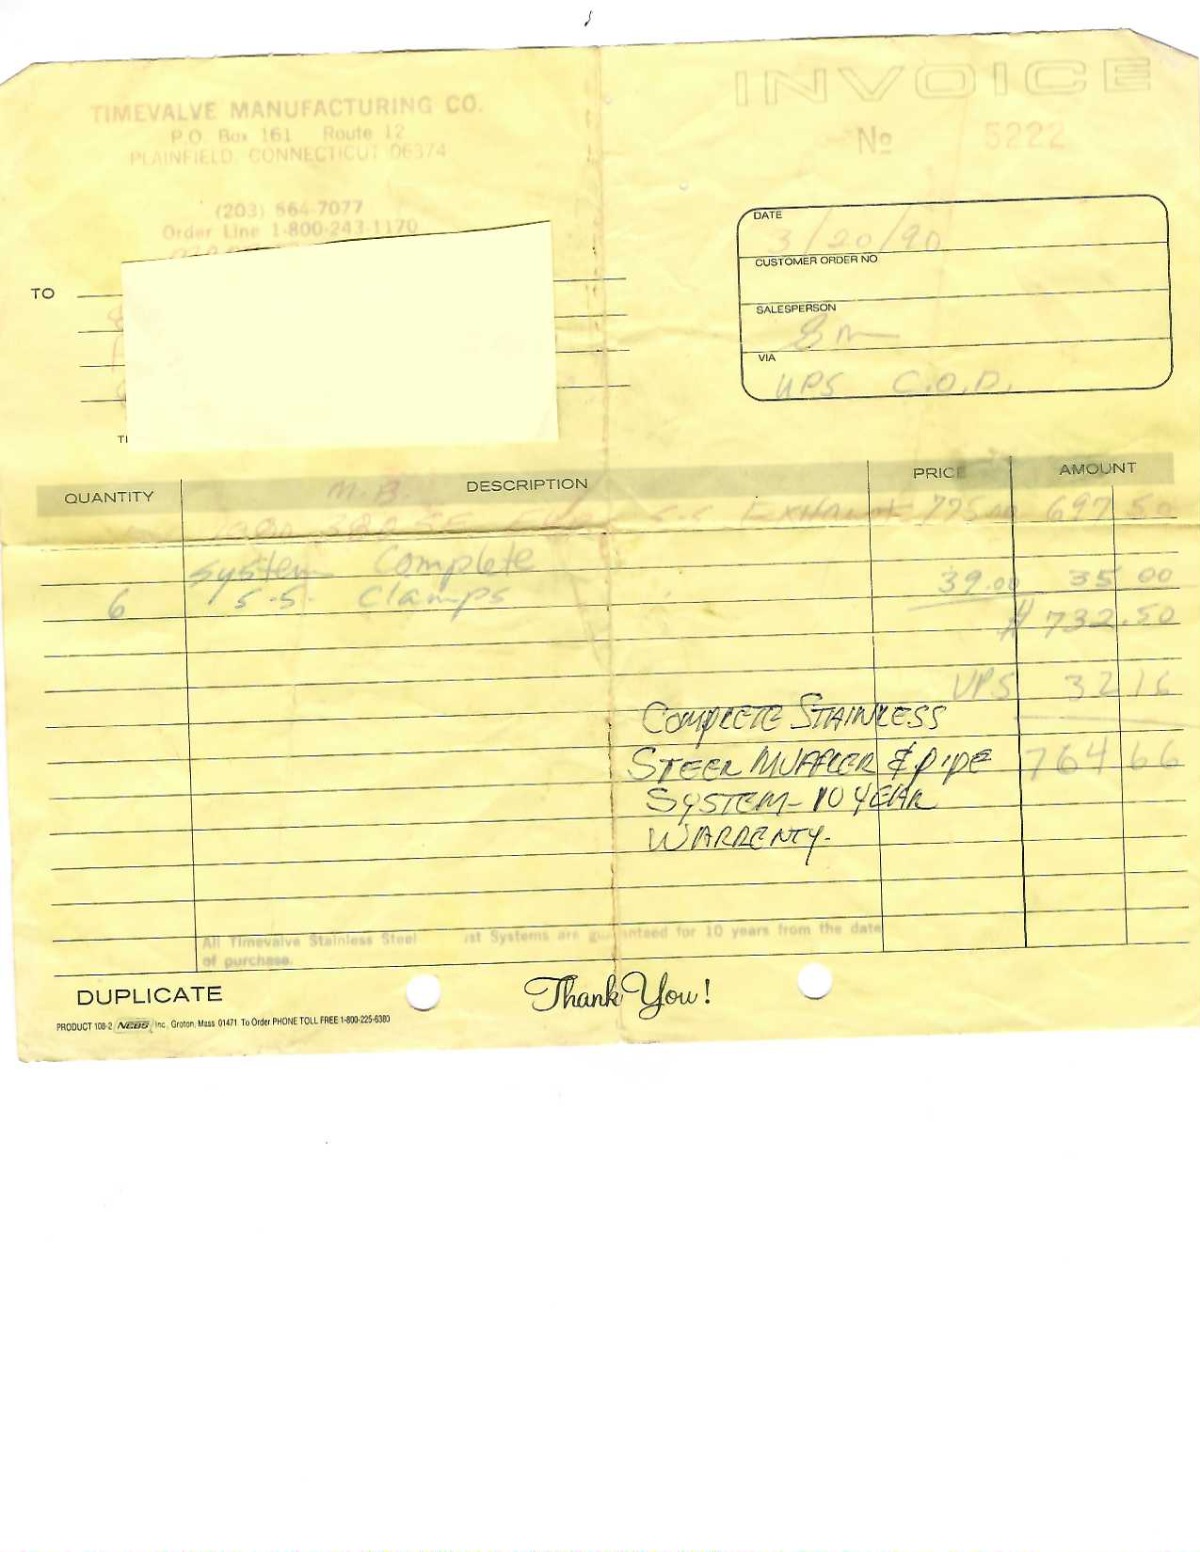 INVOICE
TIMEVALVE MANUFACTURING CO.
P.O. Box 161 Route 12
PLAINFIELD, CONNECTICUT 06374
No 5222
(203) 564-7077
Order Line 1-800-243-1170
DATE
3/20/90
CUSTOMER ORDER NO
SALESPERSON
VIA
UPS C.O.D.
TO
QUANTITY DESCRIPTION PRICE AMOUNT
M.B.
1980 380 SE S.S EXHAUST 775.00 697 50
System Complete
6 S.S. Clamps 39.00 35 00
# 732.50
UPS 32 16
COMPLETE STAINLESS
STEEL MUFFLER & PIPE 764 66
SYSTEM - 10 YEAR
WARRENTY.
All Timevalve Stainless Steel st Systems are guaranteed for 10 years from the date
of purchase.
DUPLICATE
Thank You!
PRODUCT 108-2 NEBS Inc., Groton, Mass 01471. To Order PHONE TOLL FREE 1-800-225-6380